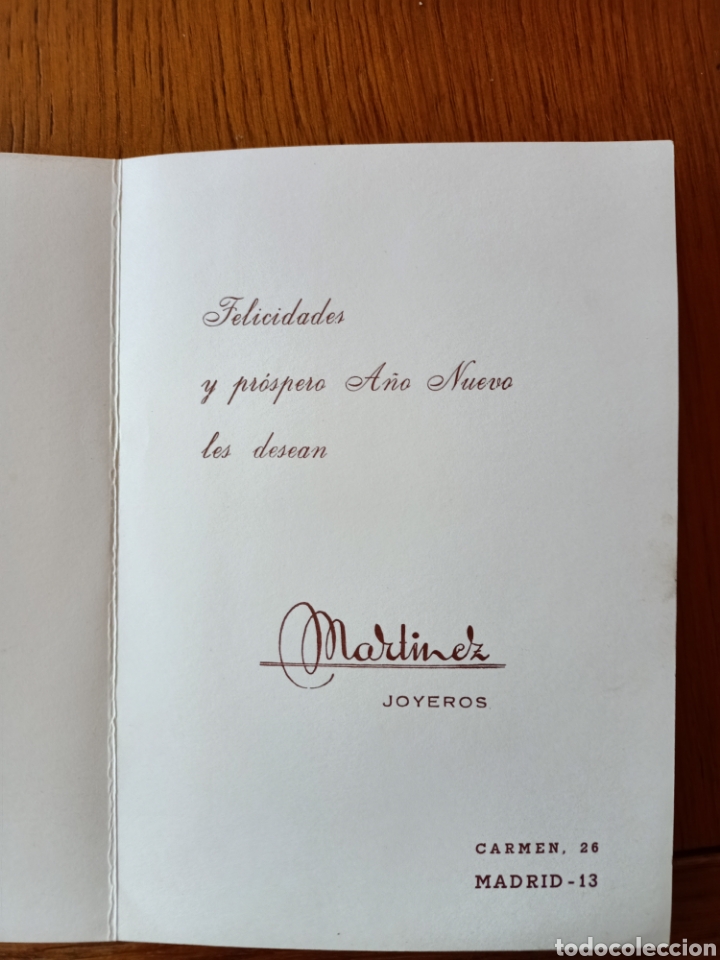 Felicidades
y próspero Año Nuevo
les desean
Martinez
JOYEROS
CARMEN, 26
MADRID - 13
todocoleccion